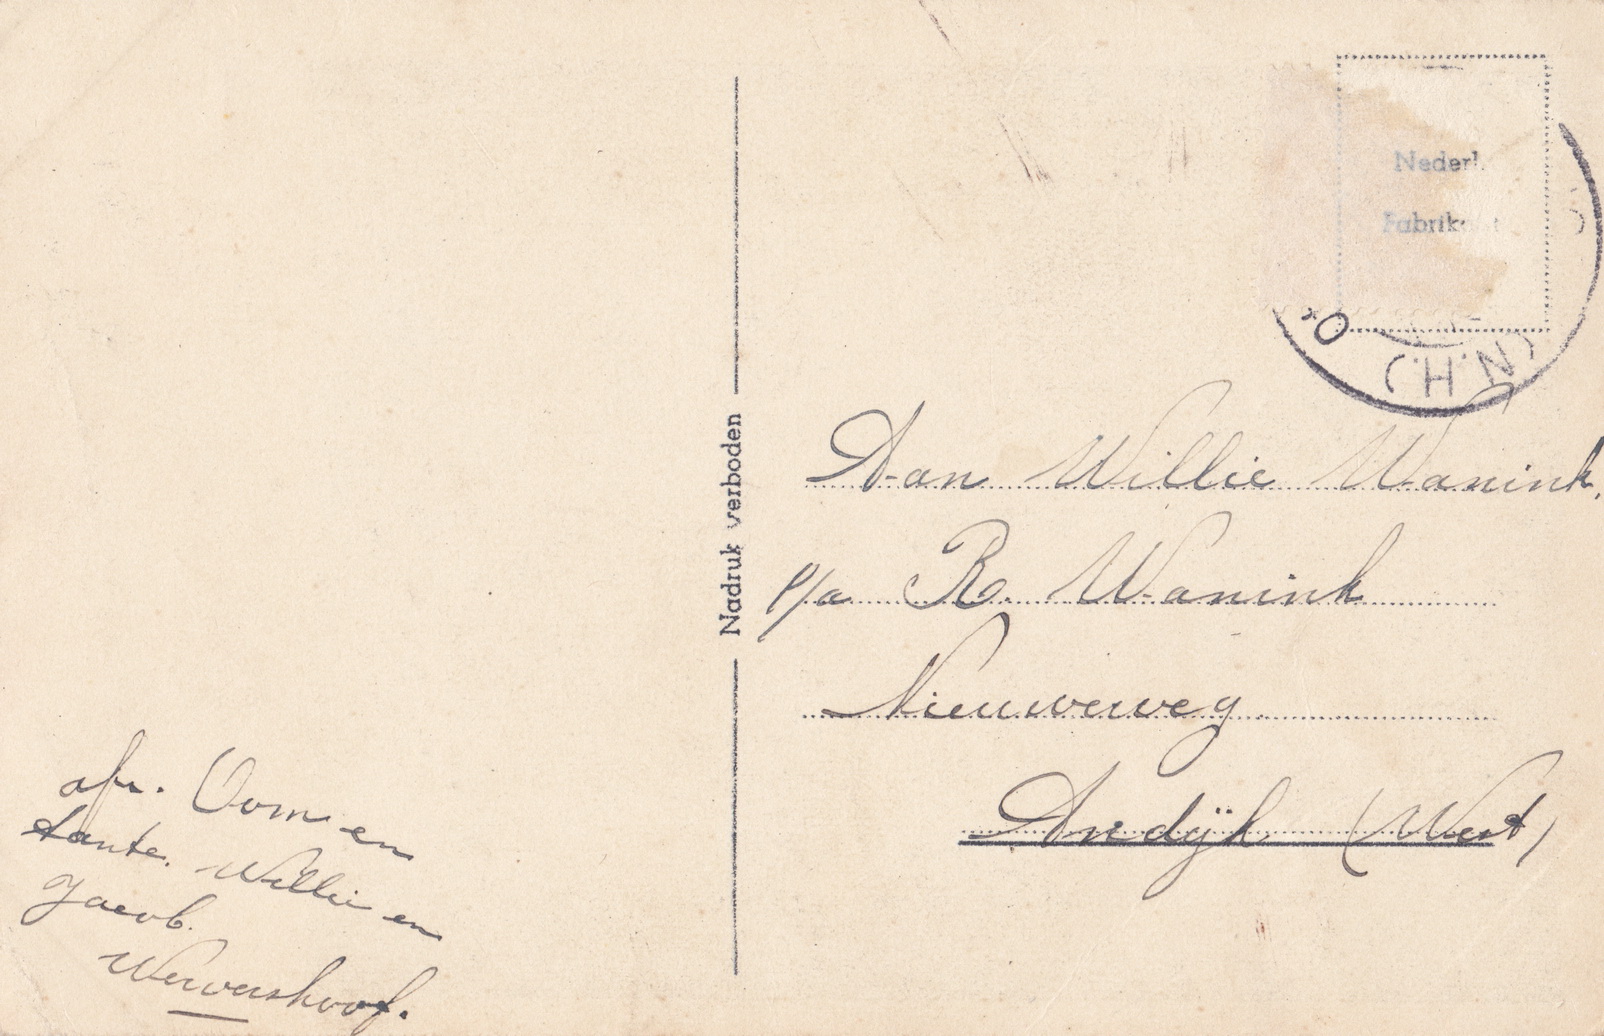 Nederl.
Fabrikaat
(N.H.)
Nadruk verboden
Aan Willie Wanink.
p/a R. Wanink
Nieuweweg
Andijk (West)
afz. Oom en
tante. Willie en
Jacob.
Wervershoof.